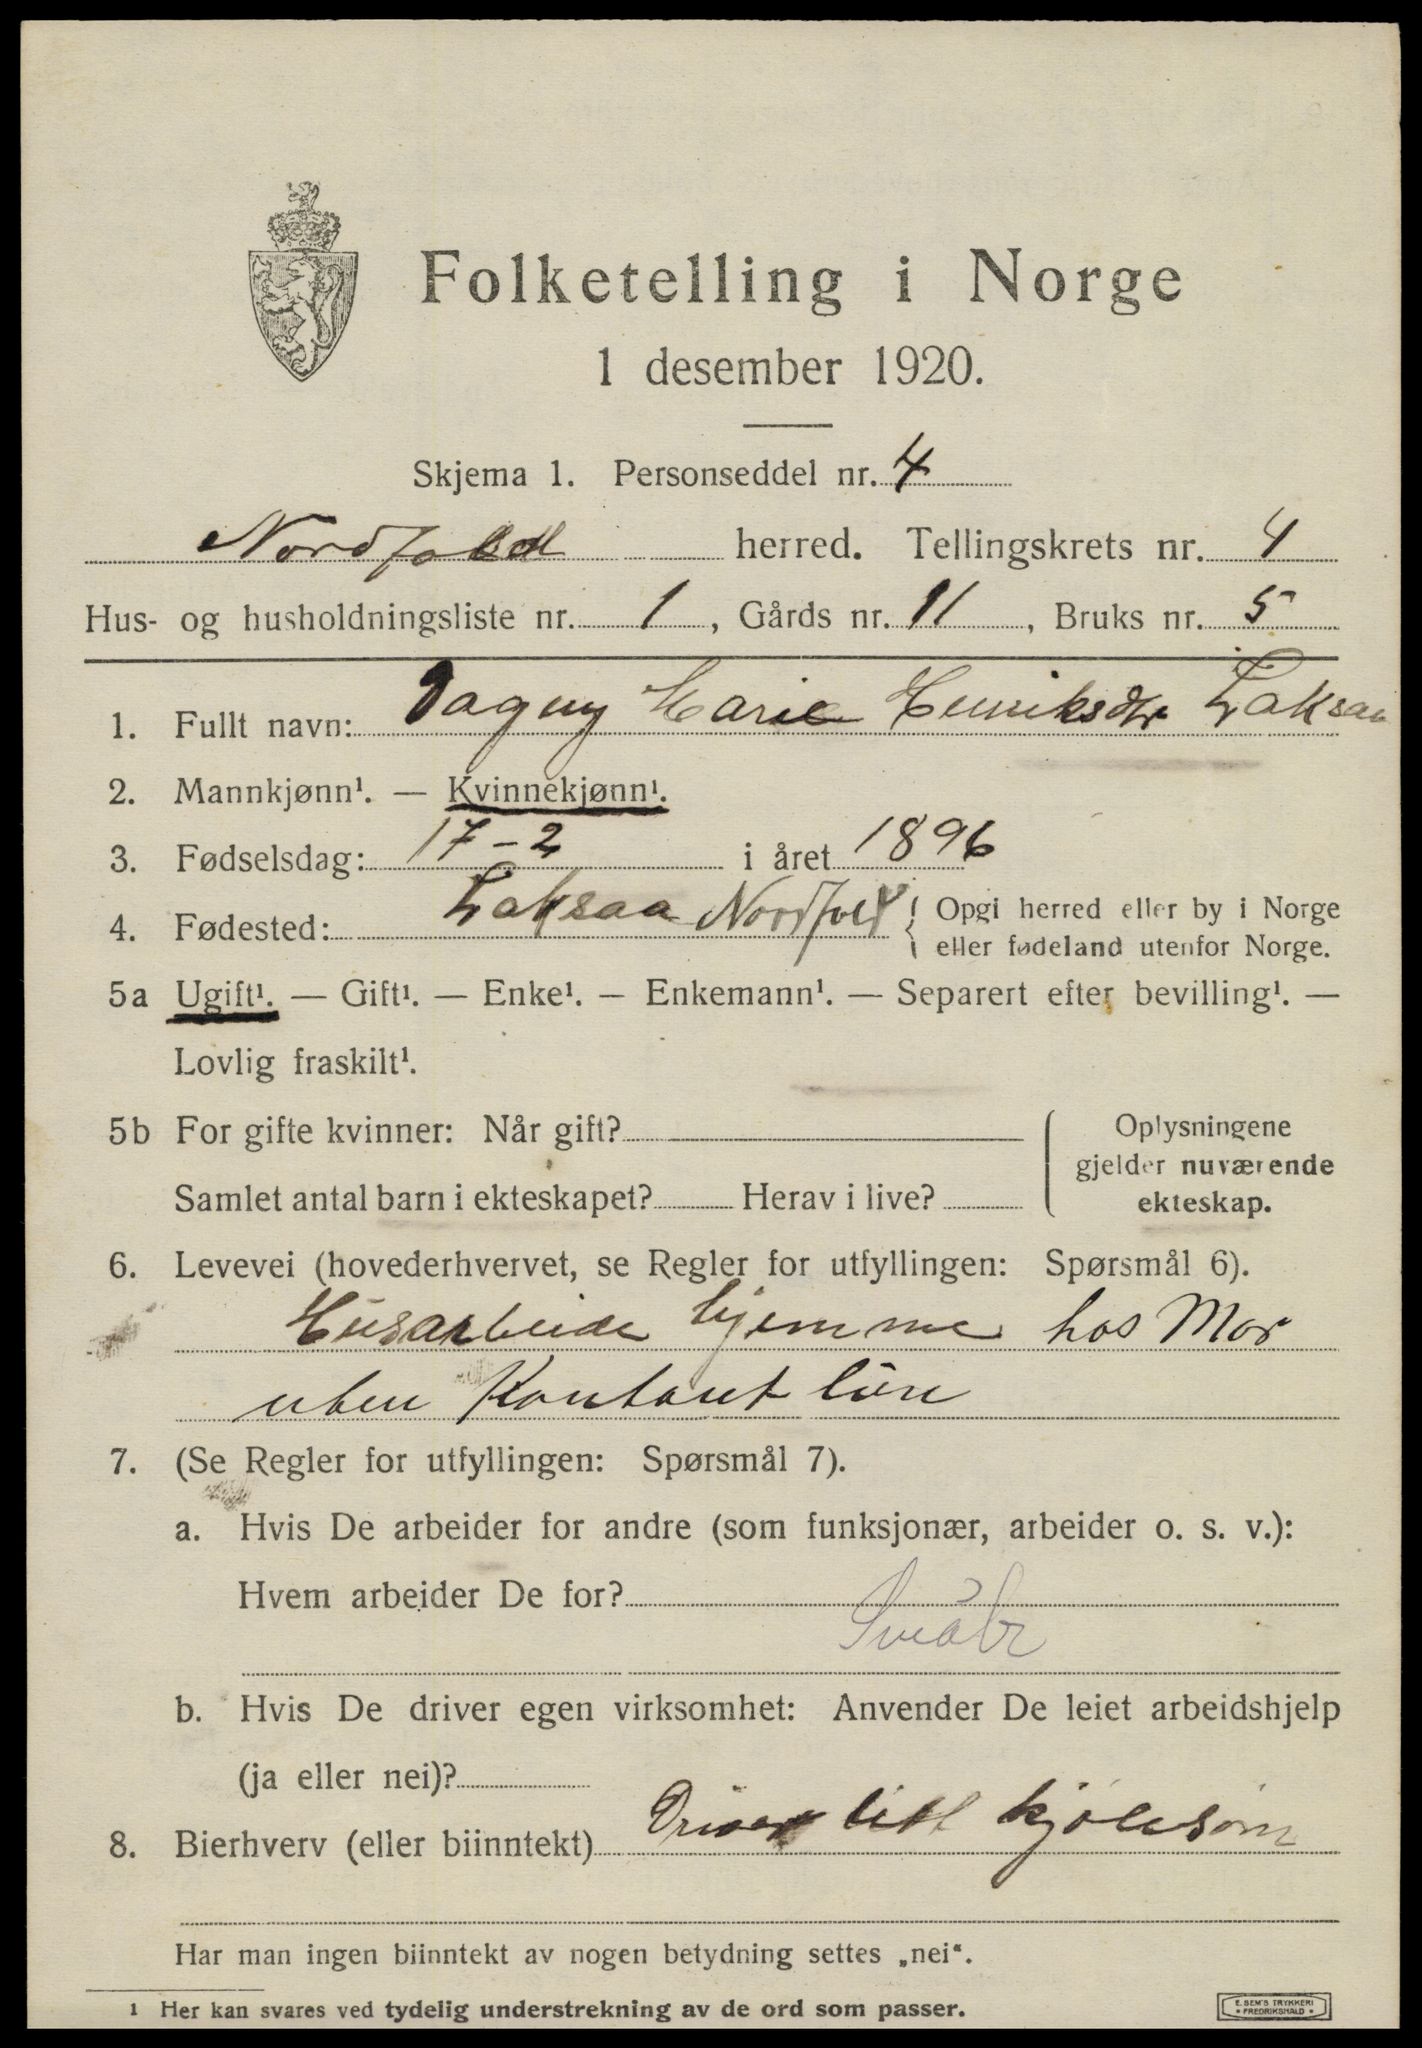 Folketelling i Norge
1 desember 1920.
Skjema 1. Personseddel nr. 4
Nordfold herred. Tellingskrets nr. 4
Hus- og husholdningsliste nr. 1, Gårds nr. 11, Bruks nr. 5
1. Fullt navn: Dagny Marie Henriksdtr Laksaa
2. Mannkjønn¹. — Kvinnekjønn¹.
3. Fødselsdag: 17-2 i året 1896
4. Fødested: Laksaa Nordfold { Opgi herred eller by i Norge
eller fødeland utenfor Norge.
5a Ugift¹. — Gift¹. — Enke¹. — Enkemann¹. — Separert efter bevilling¹. —
Lovlig fraskilt¹.
5b For gifte kvinner: Når gift?
Samlet antal barn i ekteskapet? Herav i live?
Oplysningene
gjelder nuværende
ekteskap.
6. Levevei (hovederhvervet, se Regler for utfyllingen: Spørsmål 6).
Husarbeide hjemme hos Mor
uten Kontant lön
7. (Se Regler for utfyllingen: Spørsmål 7).
a. Hvis De arbeider for andre (som funksjonær, arbeider o. s. v.):
Hvem arbeider De for?
b. Hvis De driver egen virksomhet: Anvender De leiet arbeidshjelp
(ja eller nei)?
8. Bierhverv (eller biinntekt) Driver litt kjolesöm
Har man ingen biinntekt av nogen betydning settes „nei“.
1 Her kan svares ved tydelig understrekning av de ord som passer.
E. SEM'S TRYKKERI
* FREDRIKSHALD *